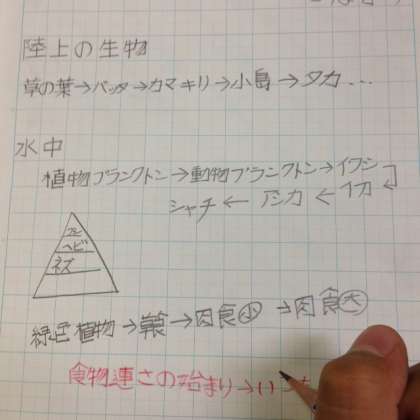 陸上の生物
草の葉→バッタ→カマキリ→小鳥→タカ…
水中
植物プランクトン→動物プランクトン→イワシ
シャチ←アシカ←イカ
ヘビ
ネズ
緑色植物→草食→肉食小→肉食大
食物連さの始まり→